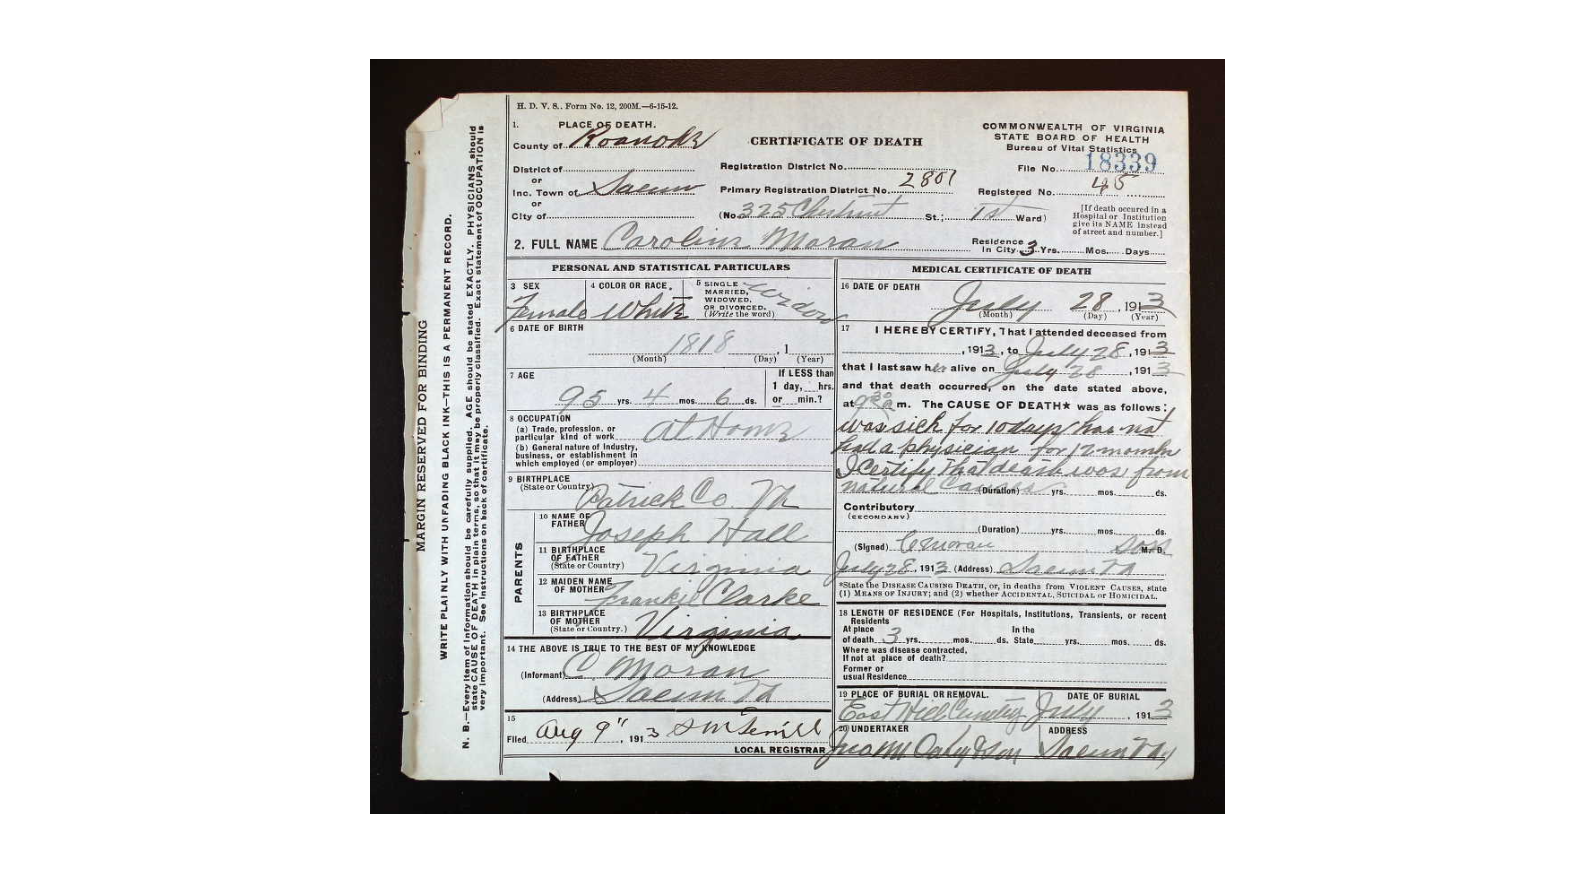 H. D. V. S., Form No. 12, 200M.—6-15-12.
1. PLACE OF DEATH.
County of Roanoke
District of
or
Inc. Town of Salem
or
City of
CERTIFICATE OF DEATH
Registration District No.
Primary Registration District No. 2801
(No. 325 Chestnut St.; 1st Ward)
COMMONWEALTH OF VIRGINIA
STATE BOARD OF HEALTH
Bureau of Vital Statistics
File No. 18339
Registered No. 45
[If death occured in a
Hospital or Institution
give its NAME instead
of street and number.]
2. FULL NAME Caroline Moran
Residence
In City 3 Yrs. Mos. Days
PERSONAL AND STATISTICAL PARTICULARS
3 SEX
Female
4 COLOR OR RACE.
White
5 SINGLE
MARRIED,
WIDOWED,
OR DIVORCED.
(Write the word)
widow
6 DATE OF BIRTH
1818, 1
(Month) (Day) (Year)
7 AGE
95 yrs. 4 mos. 6 ds.
If LESS than
1 day, hrs.
or min.?
8 OCCUPATION
(a) Trade, profession, or
particular kind of work At Home
(b) General nature of Industry,
business, or establishment in
which employed (or employer)
9 BIRTHPLACE
(State or Country) Patrick Co. Va
PARENTS
10 NAME OF
FATHER Joseph Hall
11 BIRTHPLACE
OF FATHER
(State or Country) Virginia
12 MAIDEN NAME
OF MOTHER Frankie Clarke
13 BIRTHPLACE
OF MOTHER
(State or Country.) Virginia
14 THE ABOVE IS TRUE TO THE BEST OF MY KNOWLEDGE
(Informant) C. Moran
(Address) Salem Va
15
Filed Aug 9", 1913
LOCAL REGISTRAR
MEDICAL CERTIFICATE OF DEATH
16 DATE OF DEATH
July 28, 1913
(Month) (Day) (Year)
17 I HEREBY CERTIFY, That I attended deceased from
, 1913, to July 28, 1913
that I last saw her alive on July 28, 1913
and that death occurred, on the date stated above,
at 9 30 a m. The CAUSE OF DEATH* was as follows:
was sick for 10 days has not
had a physician for 12 months
I certify that death was from
natural causes (Duration) yrs. mos. ds.
Contributory
(SECONDARY)
(Duration) yrs. mos. ds.
(Signed) C Moran son M. D.
July 28, 1913 (Address) Salem Va
*State the DISEASE CAUSING DEATH, or, in deaths from VIOLENT CAUSES, state
(1) MEANS OF INJURY; and (2) whether ACCIDENTAL, SUICIDAL or HOMICIDAL.
18 LENGTH OF RESIDENCE (For Hospitals, Institutions, Transients, or recent
Residents
At place In the
of death 3 yrs. mos. ds. State yrs. mos. ds.
Where was disease contracted,
If not at place of death?
Former or
usual Residence
19 PLACE OF BURIAL OR REMOVAL. DATE OF BURIAL
East Hill Cemetery July, 1913
20 UNDERTAKER ADDRESS
Jno M Oakey & Son Salem Va
MARGIN RESERVED FOR BINDING
WRITE PLAINLY WITH UNFADING BLACK INK—THIS IS A PERMANENT RECORD.
N. B.—Every item of information should be carefully supplied. AGE should be stated EXACTLY. PHYSICIANS should
state CAUSE OF DEATH in plain terms, so that it may be properly classified. Exact statement of OCCUPATION is
very important. See instructions on back of certificate.